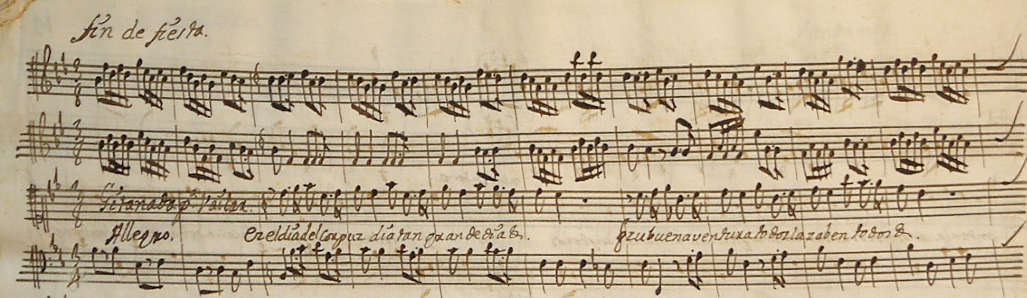 fin de fiesta.
Gitanada p.ª Vailar.
Allegro.
En el dia del Corpuz dia tan grande &c.
Su buenaventura todoz la zaben todoz &c.